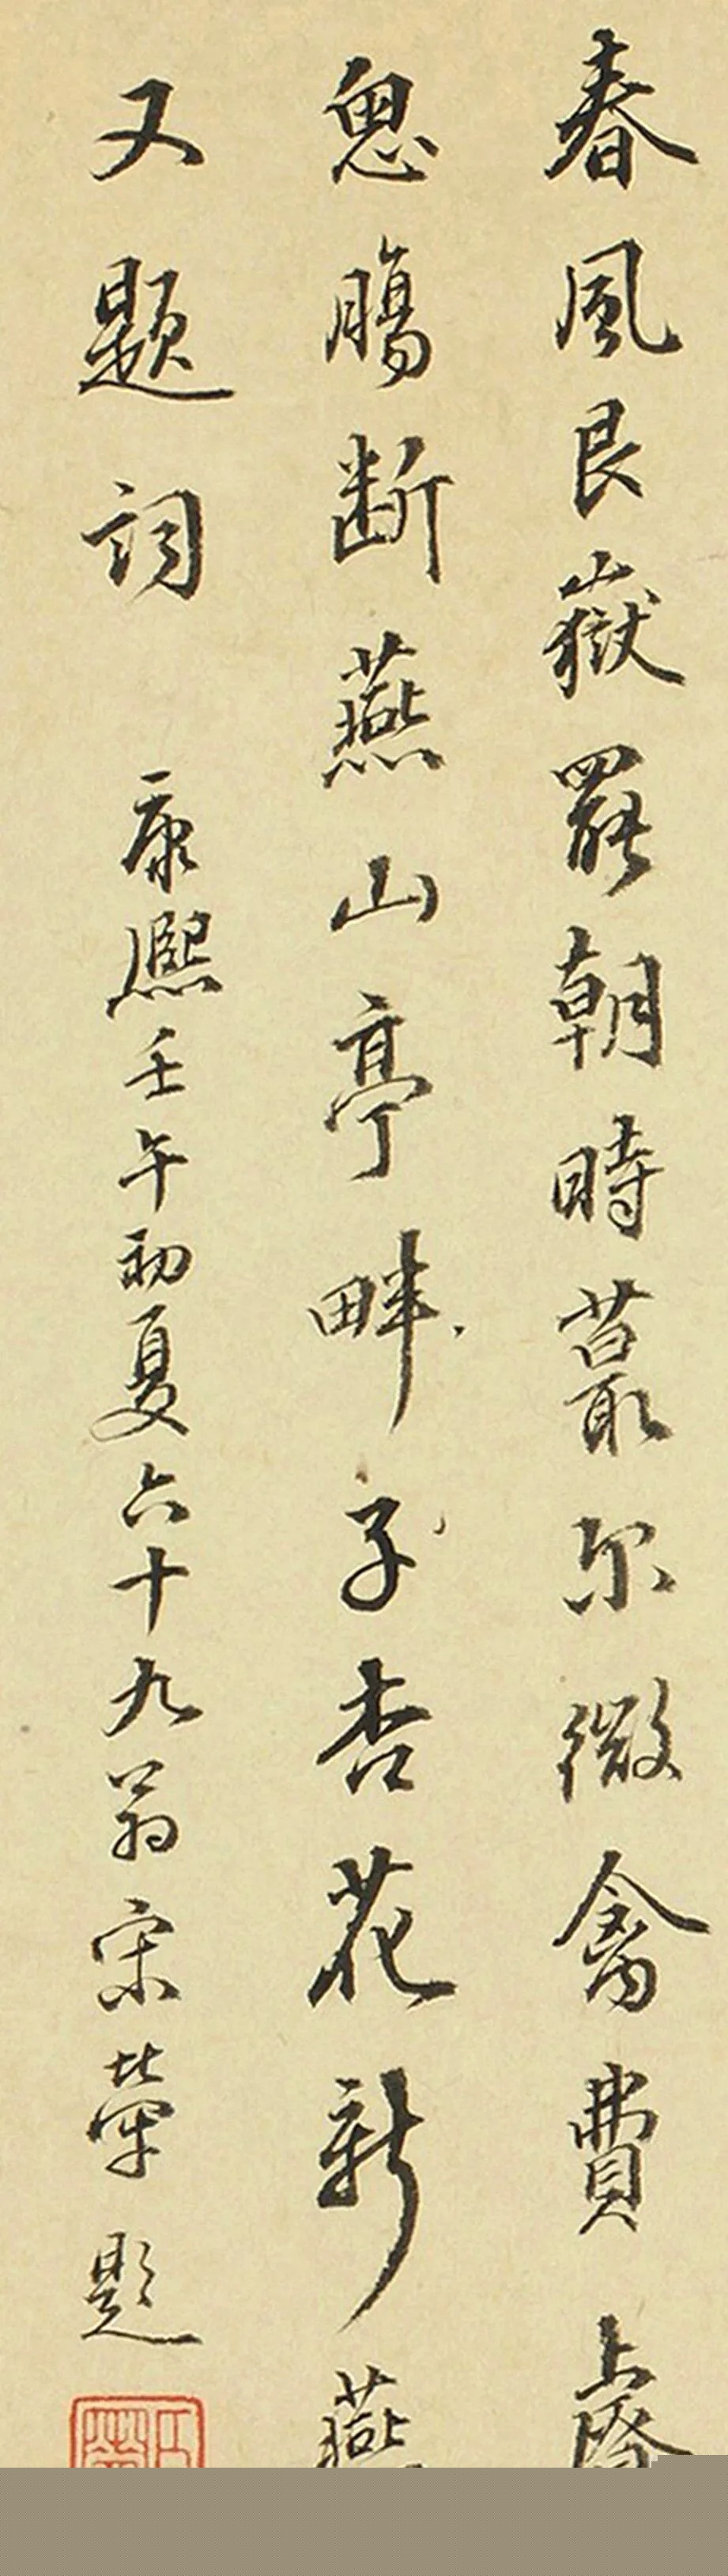 春風艮嶽罷朝時蕞尔微禽費上
思腸斷燕山亭畔子杏花新燕
又題詞 康熙壬午初夏六十九翁宋犖題